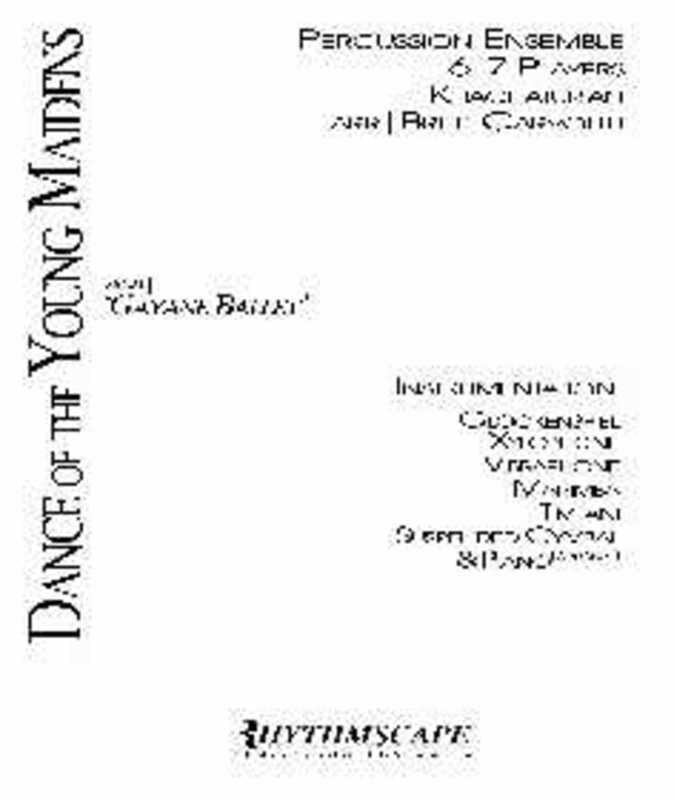 DANCE OF THE YOUNG MAIDENS
PERCUSSION ENSEMBLE
6-7 PLAYERS
KHACHATURIAN
ARR
"GAYANE BALLET"
INSTRUMENTATION
GLOCKENSPIEL
XYLOPHONE
VIBRAPHONE
MARIMBA
TIMPANI
SUSPENDED CYMBAL
& PIANO
RHYTHMSCAPE